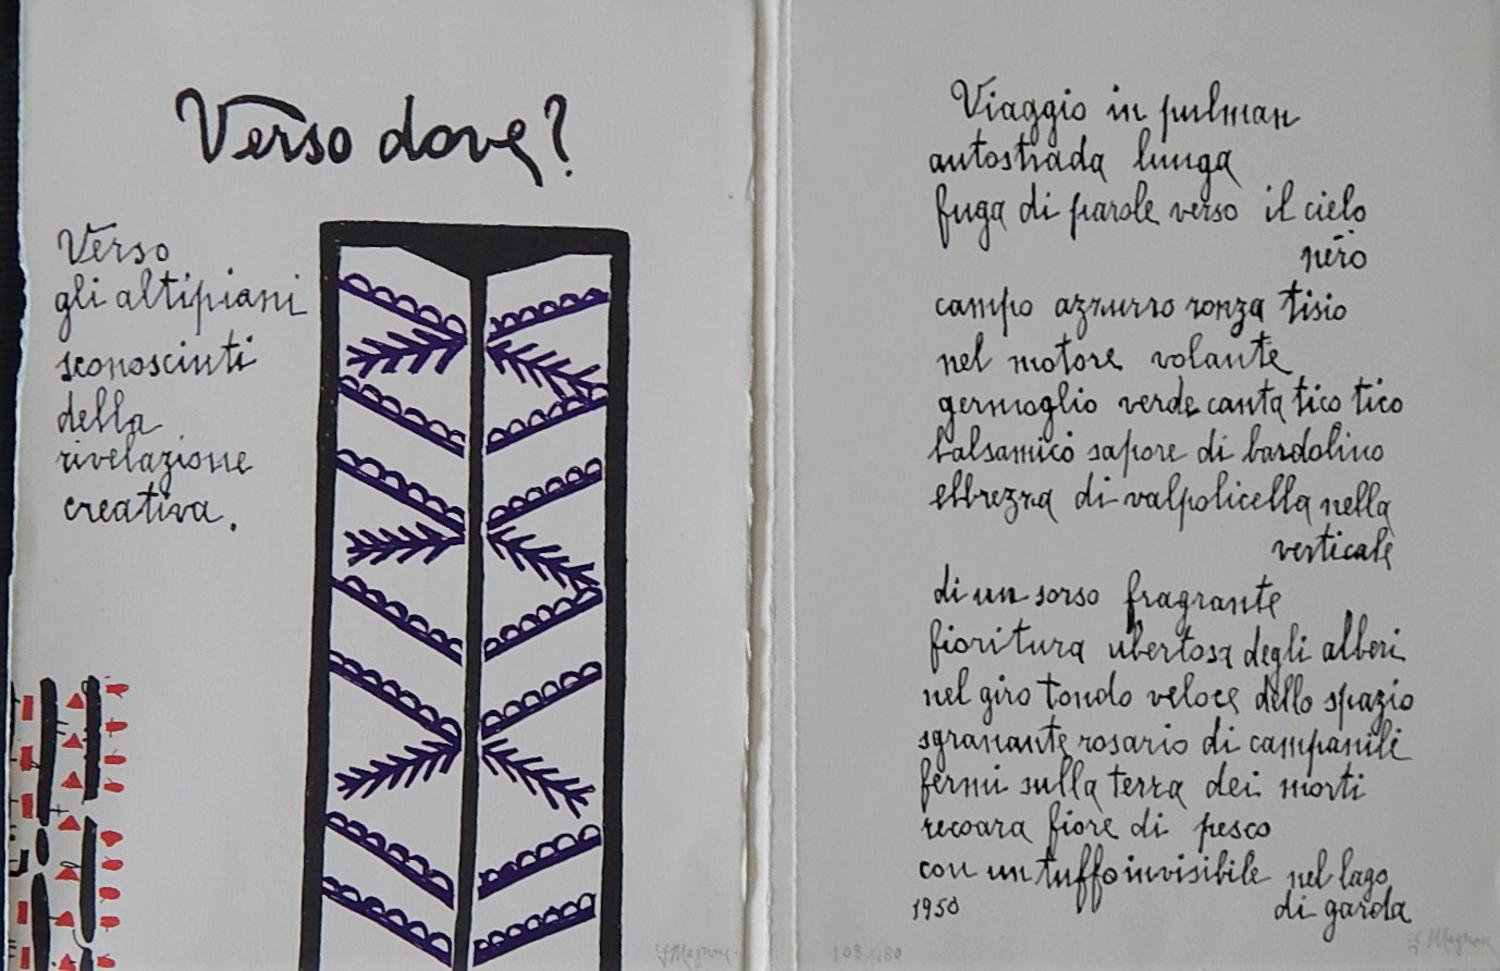 Verso dove?
Verso
gli altipiani
sconosciuti
della
rivelazione
creativa.
Viaggio in pulman
autostrada lunga
fuga di parole verso il cielo
nero
campo azzurro ronza tisio
nel motore volante
germoglio verde canta tico tico
balsamico sapore di bardolino
ebbrezza di valpolicella nella
verticale
di un sorso fragrante
fioritura ubertosa degli alberi
nel giro tondo veloce dello spazio
sgranante rosario di campanili
fermi sulla terra dei morti
recoara fiore di pesco
con un tuffo invisibile nel lago
di garda
1950
108/180